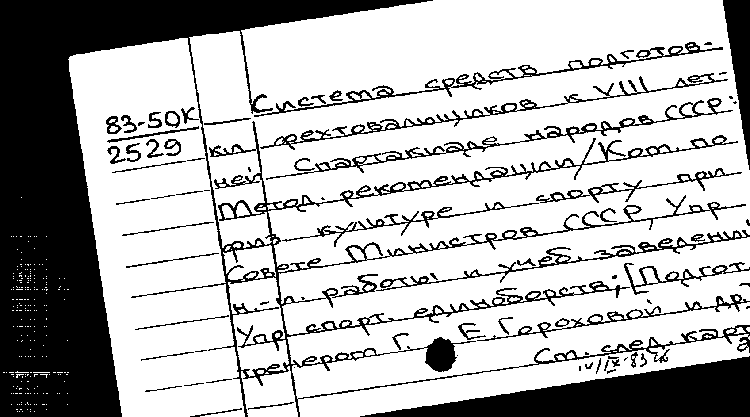 Система средств подготов-
83-50К
2529
ки фехтовальщиков к VIII лет-
ней Спартакиаде народов СССР:
Метод. рекомендации/Ком. по
физ культуре и спорту при
Совете Министров СССР, Упр
н.-и. работы и учеб. заведений
Упр спорт. единоборств; [Подгот.
тренером Г. Е. Гороховой и др.
Ст. след. карт